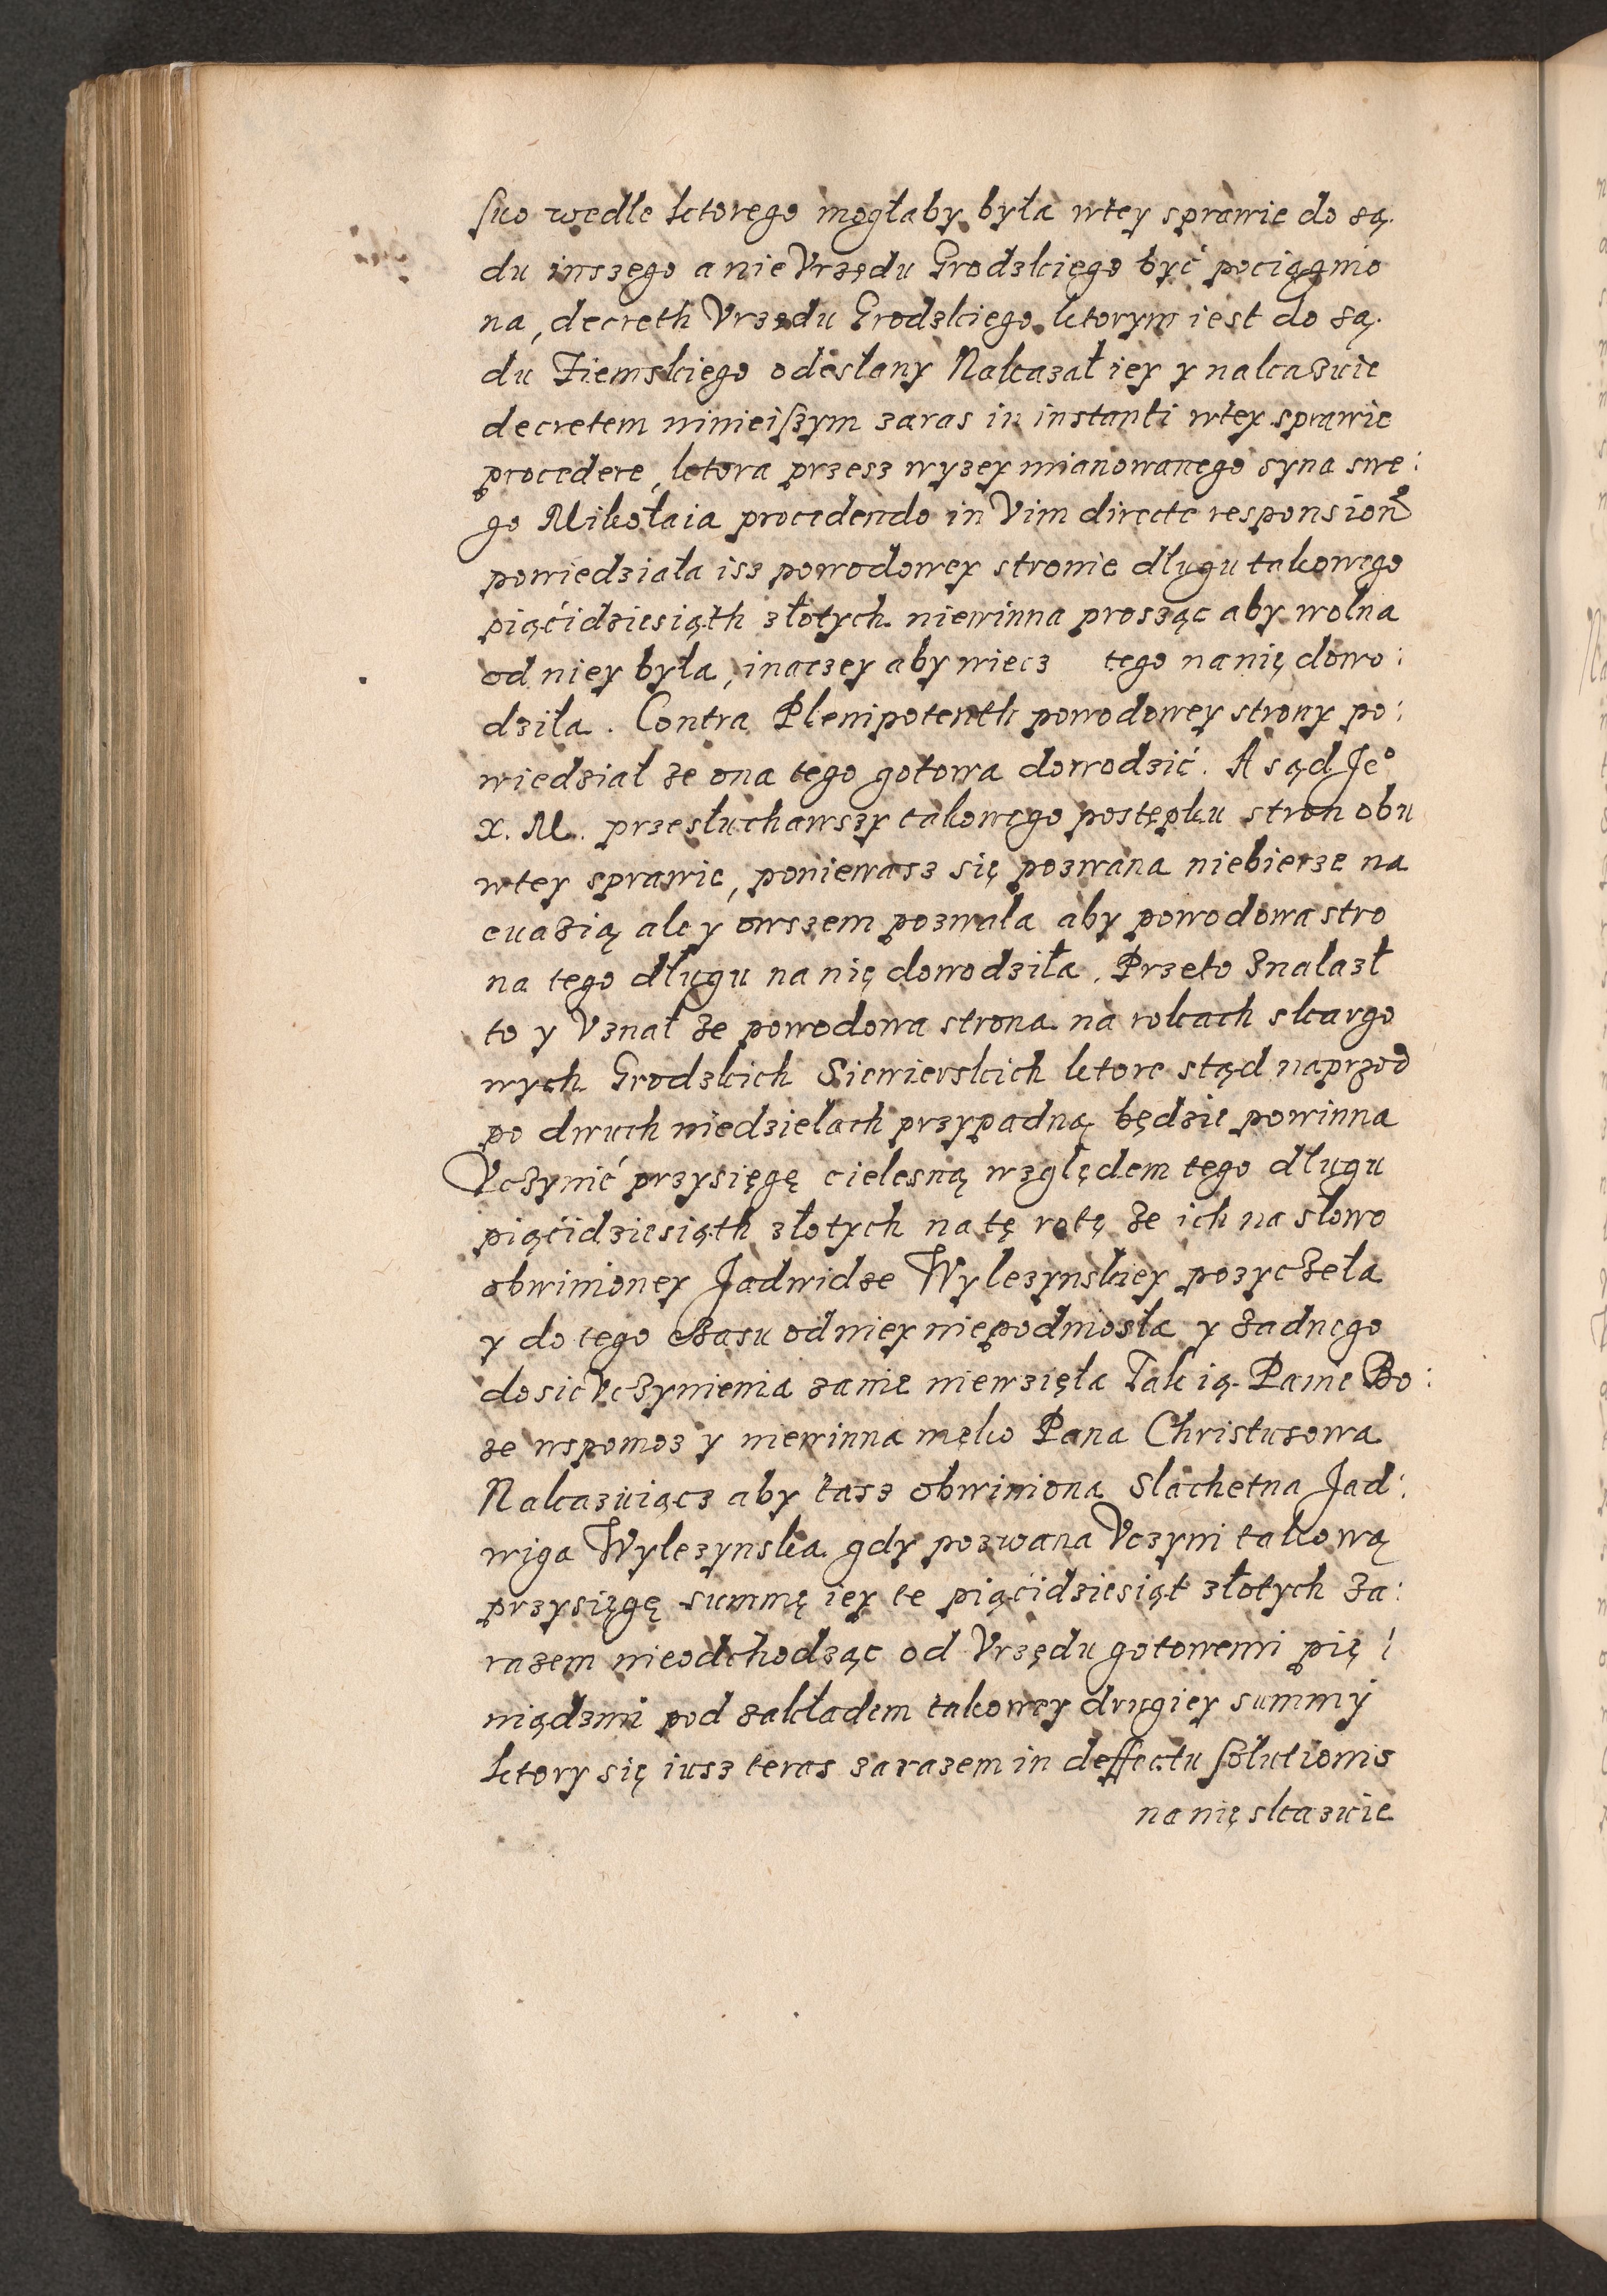 suo wedle ktorego mogłaby była wtey sprawie do są.
du inszego a nie Vrzędu Grodzkięgo być pociągnio
na, decreth Vrzędu Grodzkiego ktorym iest do są.
du Ziemskiego odesłany Nakazał iey y nakazuie
decretem ninieiszym zaras in instanti wtey sprawie
procedere, ktora przesz wyzey mianowanego syna swe:
go Mikołaia procedendo in Vim directe responsion
powiedziała isz powodowey stronie dlugu takowego
piąćidziesiąth złotych niewinna prosząc aby wolna
od niey była, inaczey aby wiecz tego na nię dowo:
dziła. Contra Plenipotenth powodowey strony po:
wiedzial ze ona tego gotowa dowodzić. A sąd Je°
X. M. przesłuchawszy takowego postępku stron obu
wtey sprawie, poniewasz się pozwana niebierze na
euazią ale y owszem pozwala aby powodowa stro
na tego dlugu na nię dowodziła. Przeto znalazł
to y Vznał ze powodowa strona na rokach skargo
wych Grodzkich Siewierskich ktore stąd naprzod
po dwuch niedzielach przypadną będzie powinna
Vczynić przysięgę cielesną względem tego dlugu
piąćidziesiąth złotych na tę rotę ze ich na słowo
obwinioney Jadwidze Wylezynskiey pozyczeła
y do tego czasu od niey niepodniosła y zadnego
dosic Vczynienia zanie niewzięła Tak ią Panie Bo:
ze wspomoz y niewinna męko Pana Christusowa
Nakazuiącz aby tasz obwiniona Slachetna Jad:
wiga Wylezynska gdy pozwana Vczyni takową
przysięgę summę iey te piąćidziesiąt złotych za:
razem nieodchodząc od Vrzędu gotowemi pię:
niądzmi pod zakładem takowey drugiey summy
ktory się iusz teras zarazem in deffectu solutionis
na nię skazuie